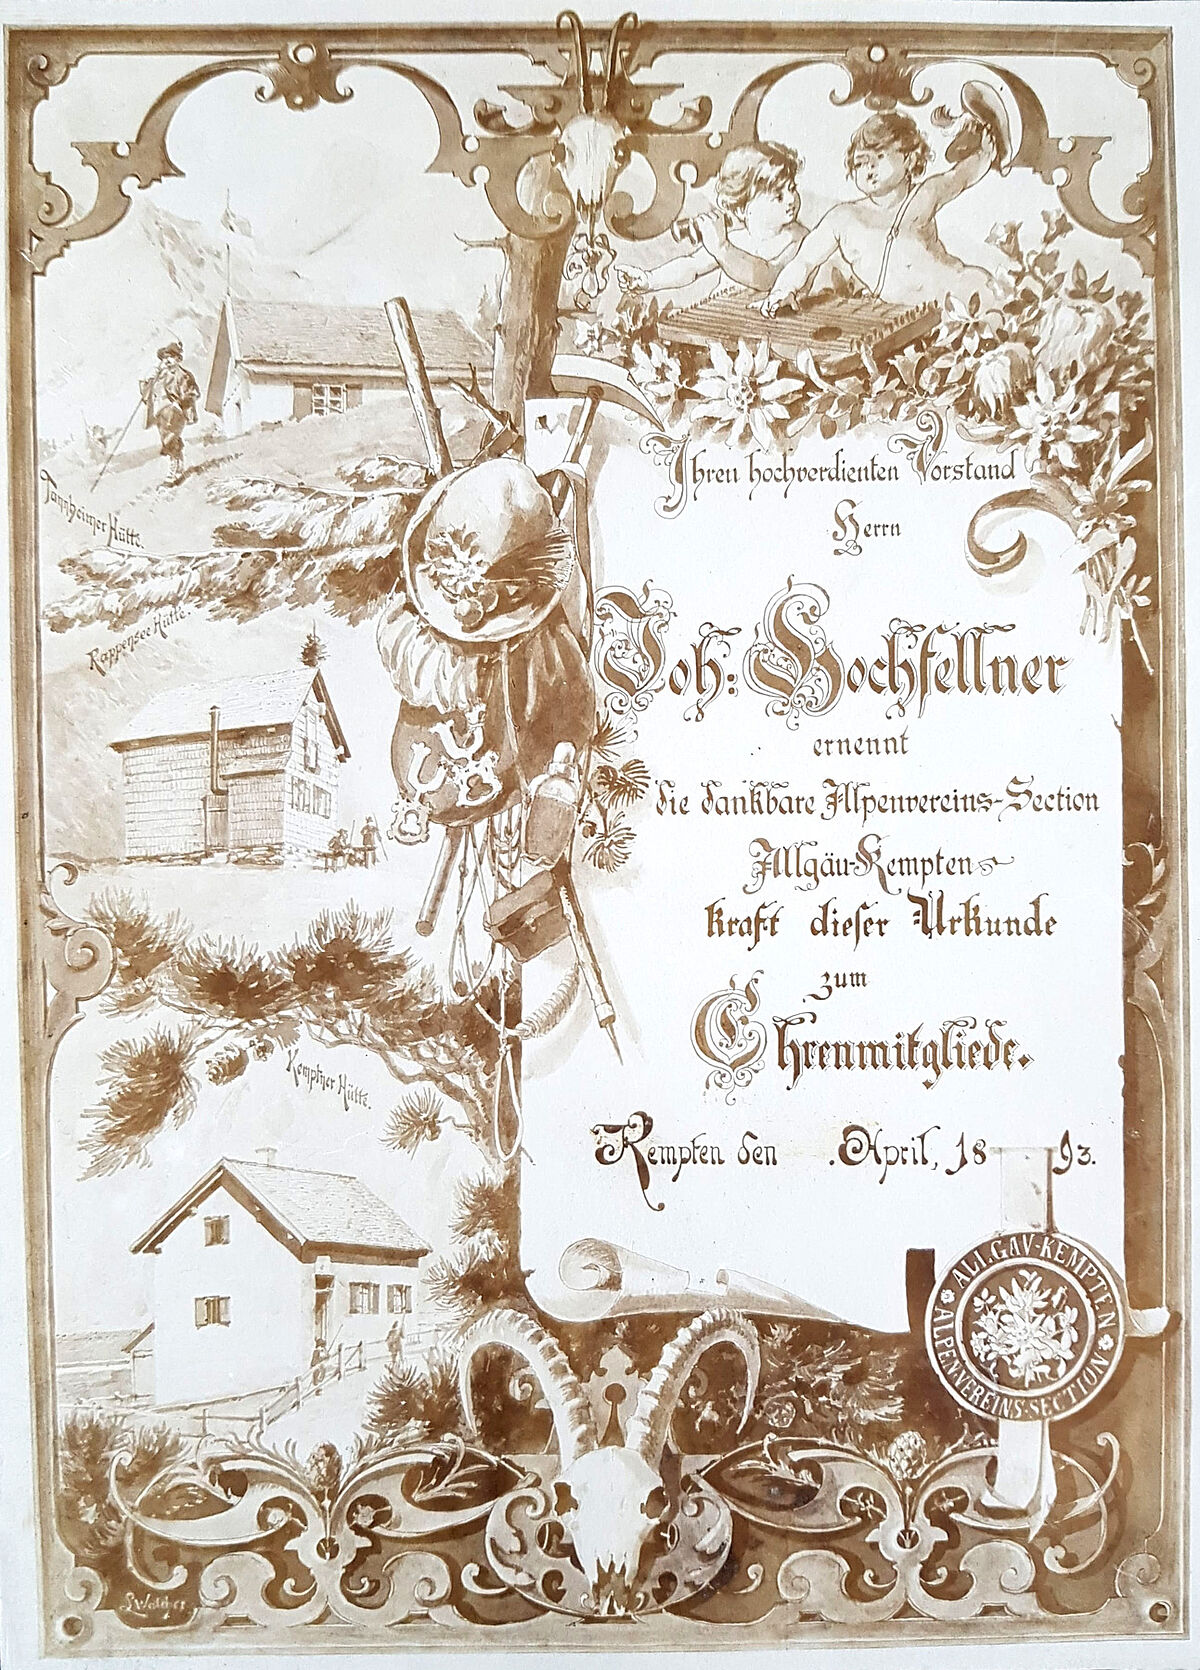 Tannheimer Hütte.
Rappensee Hütte.
Kemptner Hütte.
Ihren hochverdienten Vorstand
Herrn
Joh: Hochfellner
ernennt
die dankbare Alpenvereins-Section
Allgäu-Kempten
kraft dieser Urkunde
zum
Ehrenmitgliede.
Kempten den . April, 1893.
ALLGAV-KEMPTEN
ALPENVEREINS-SECTION